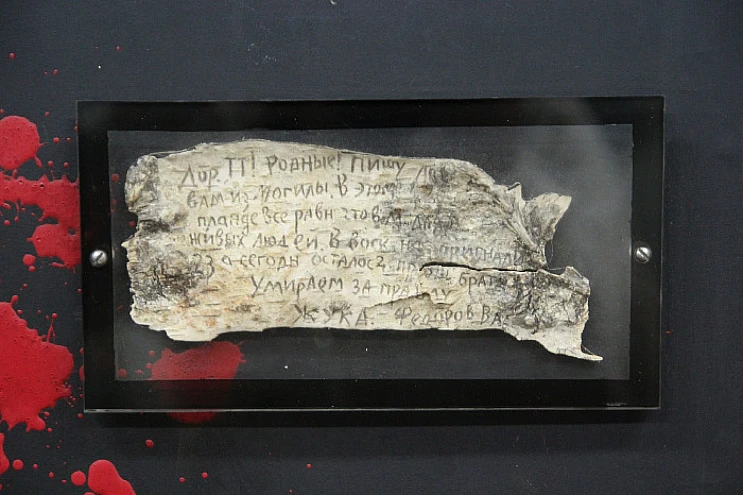 Дор. ТТ! Родные! Пишу
вам из могилы. В этом
плакде все равн что в
живых людей. В воск. на пригнали
23 а сегодн осталос 2. братц
Умираем за правду
Жук А. Федоров ВА.